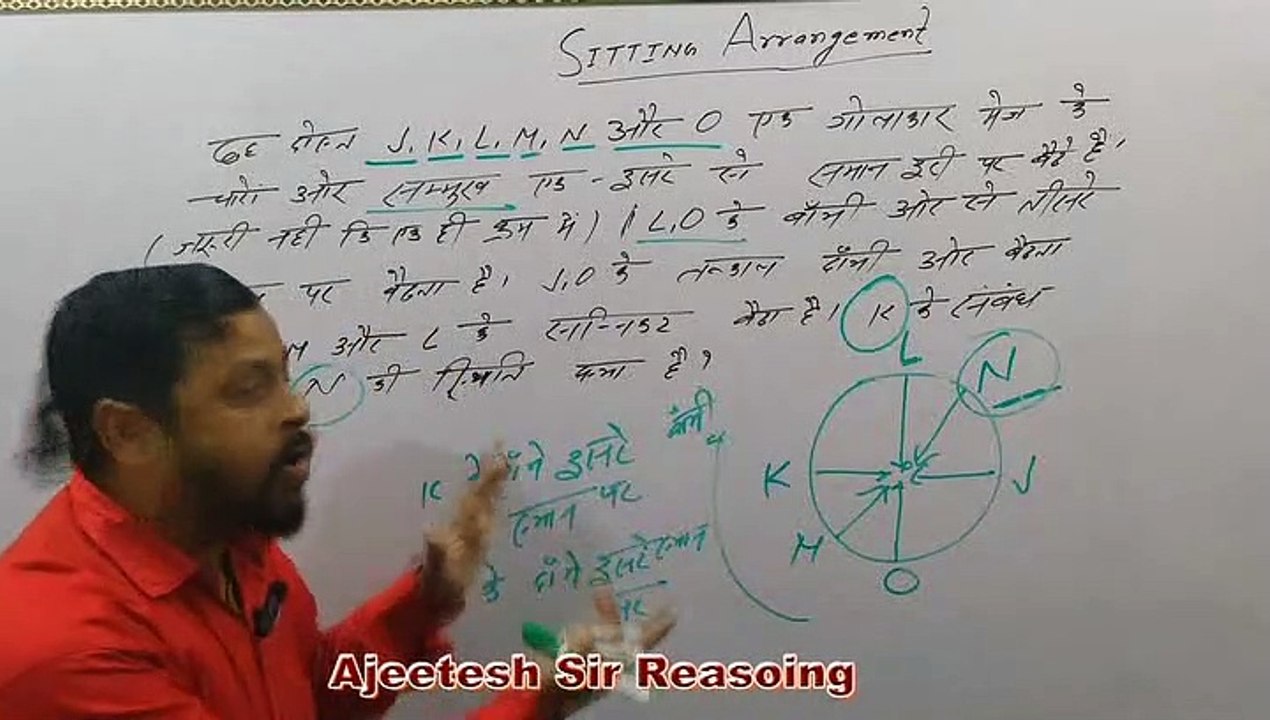 SITTING Arrangement
छह दोस्त J, K, L, M, N और O एक गोलाकार मेज के
चारो ओर सम्मुख एक-दूसरे से समान दूरी पर बैठे है,
(जरूरी नही कि एक ही क्रम में) । L, O के बाँयी ओर से तीसरे
पर बैठता है। J, O के तत्काल दाँयी ओर बैठता
M और L के सन्निकट बैठा है। K के संबंध
N की स्थिति क्या है?
L
N
K
J
M
O
बाँयी
K के दाँये दूसरे
स्थान पर
के दाँये दूसरे स्थान
पर
Ajeetesh Sir Reasoing